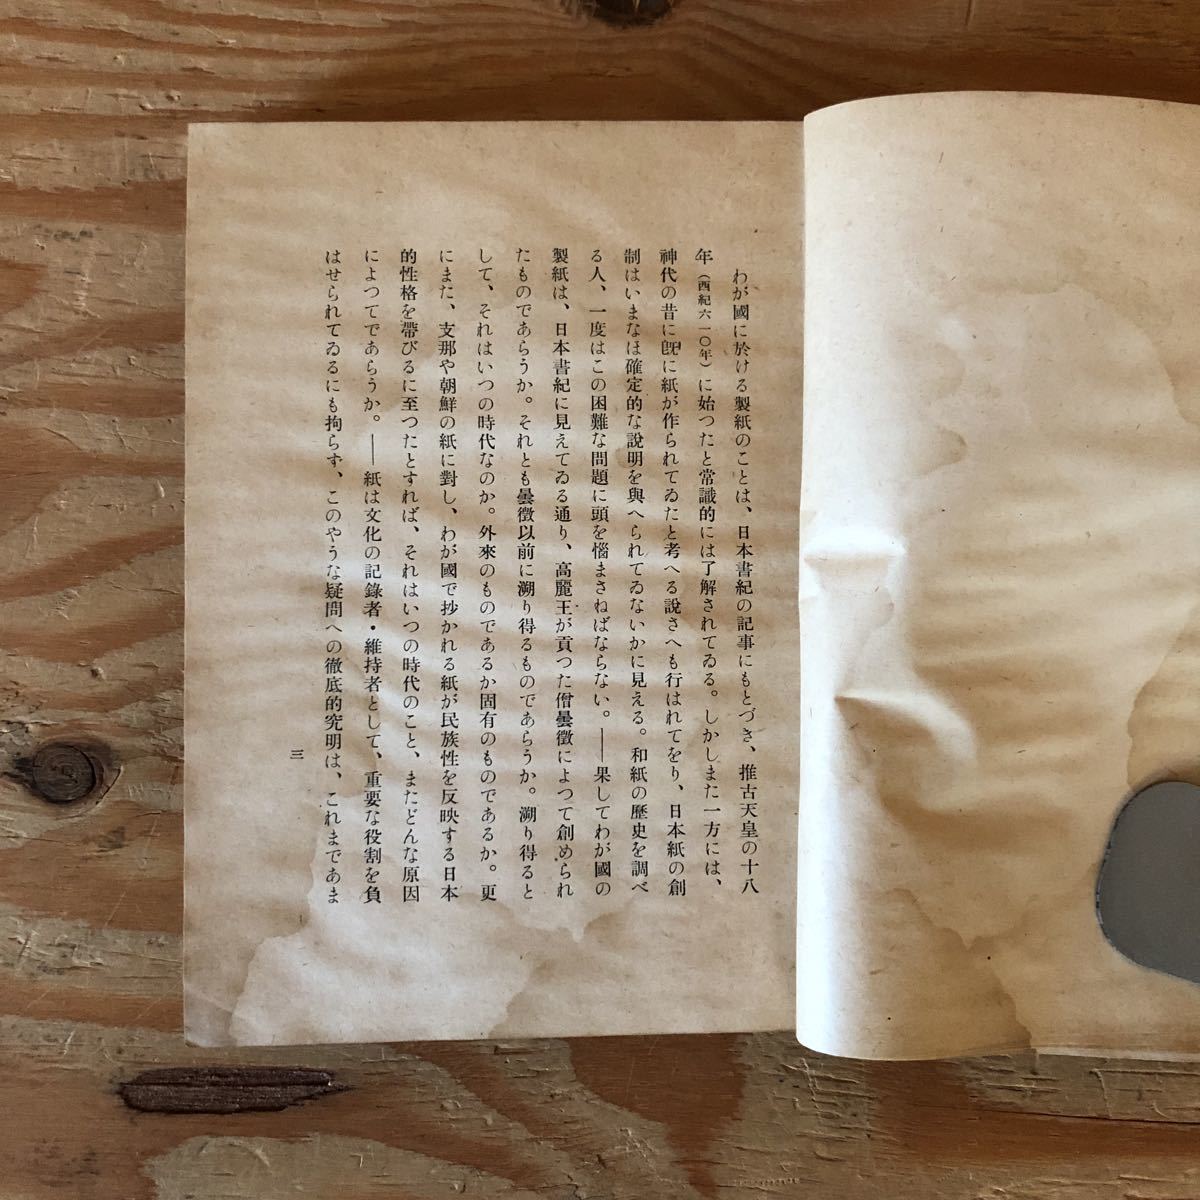 わが國に於ける製紙のことは、日本書紀の記事にもとづき、推古天皇の十八
年（西紀六一〇年）に始つたと常識的には了解されてゐる。しかしまた一方には、
神代の昔に旣に紙が作られてゐたと考へる說さへも行はれてをり、日本紙の創
制はいまなほ確定的な說明を與へられてゐないかに見える。和紙の歷史を調べ
る人、一度はこの困難な問題に頭を惱まさねばならない。――果してわが國の
製紙は、日本書紀に見えてゐる通り、高麗王が貢つた僧曇徵によつて創められ
たものであらうか。それとも曇徵以前に溯り得るものであらうか。溯り得ると
して、それはいつの時代なのか。外來のものであるか固有のものであるか。更
にまた、支那や朝鮮の紙に對し、わが國で抄かれる紙が民族性を反映する日本
的性格を帶びるに至つたとすれば、それはいつの時代のこと、またどんな原因
によつてであらうか。――紙は文化の記錄者・維持者として、重要な役割を負
はせられてゐるにも拘らず、このやうな疑問への徹底的究明は、これまであま
三